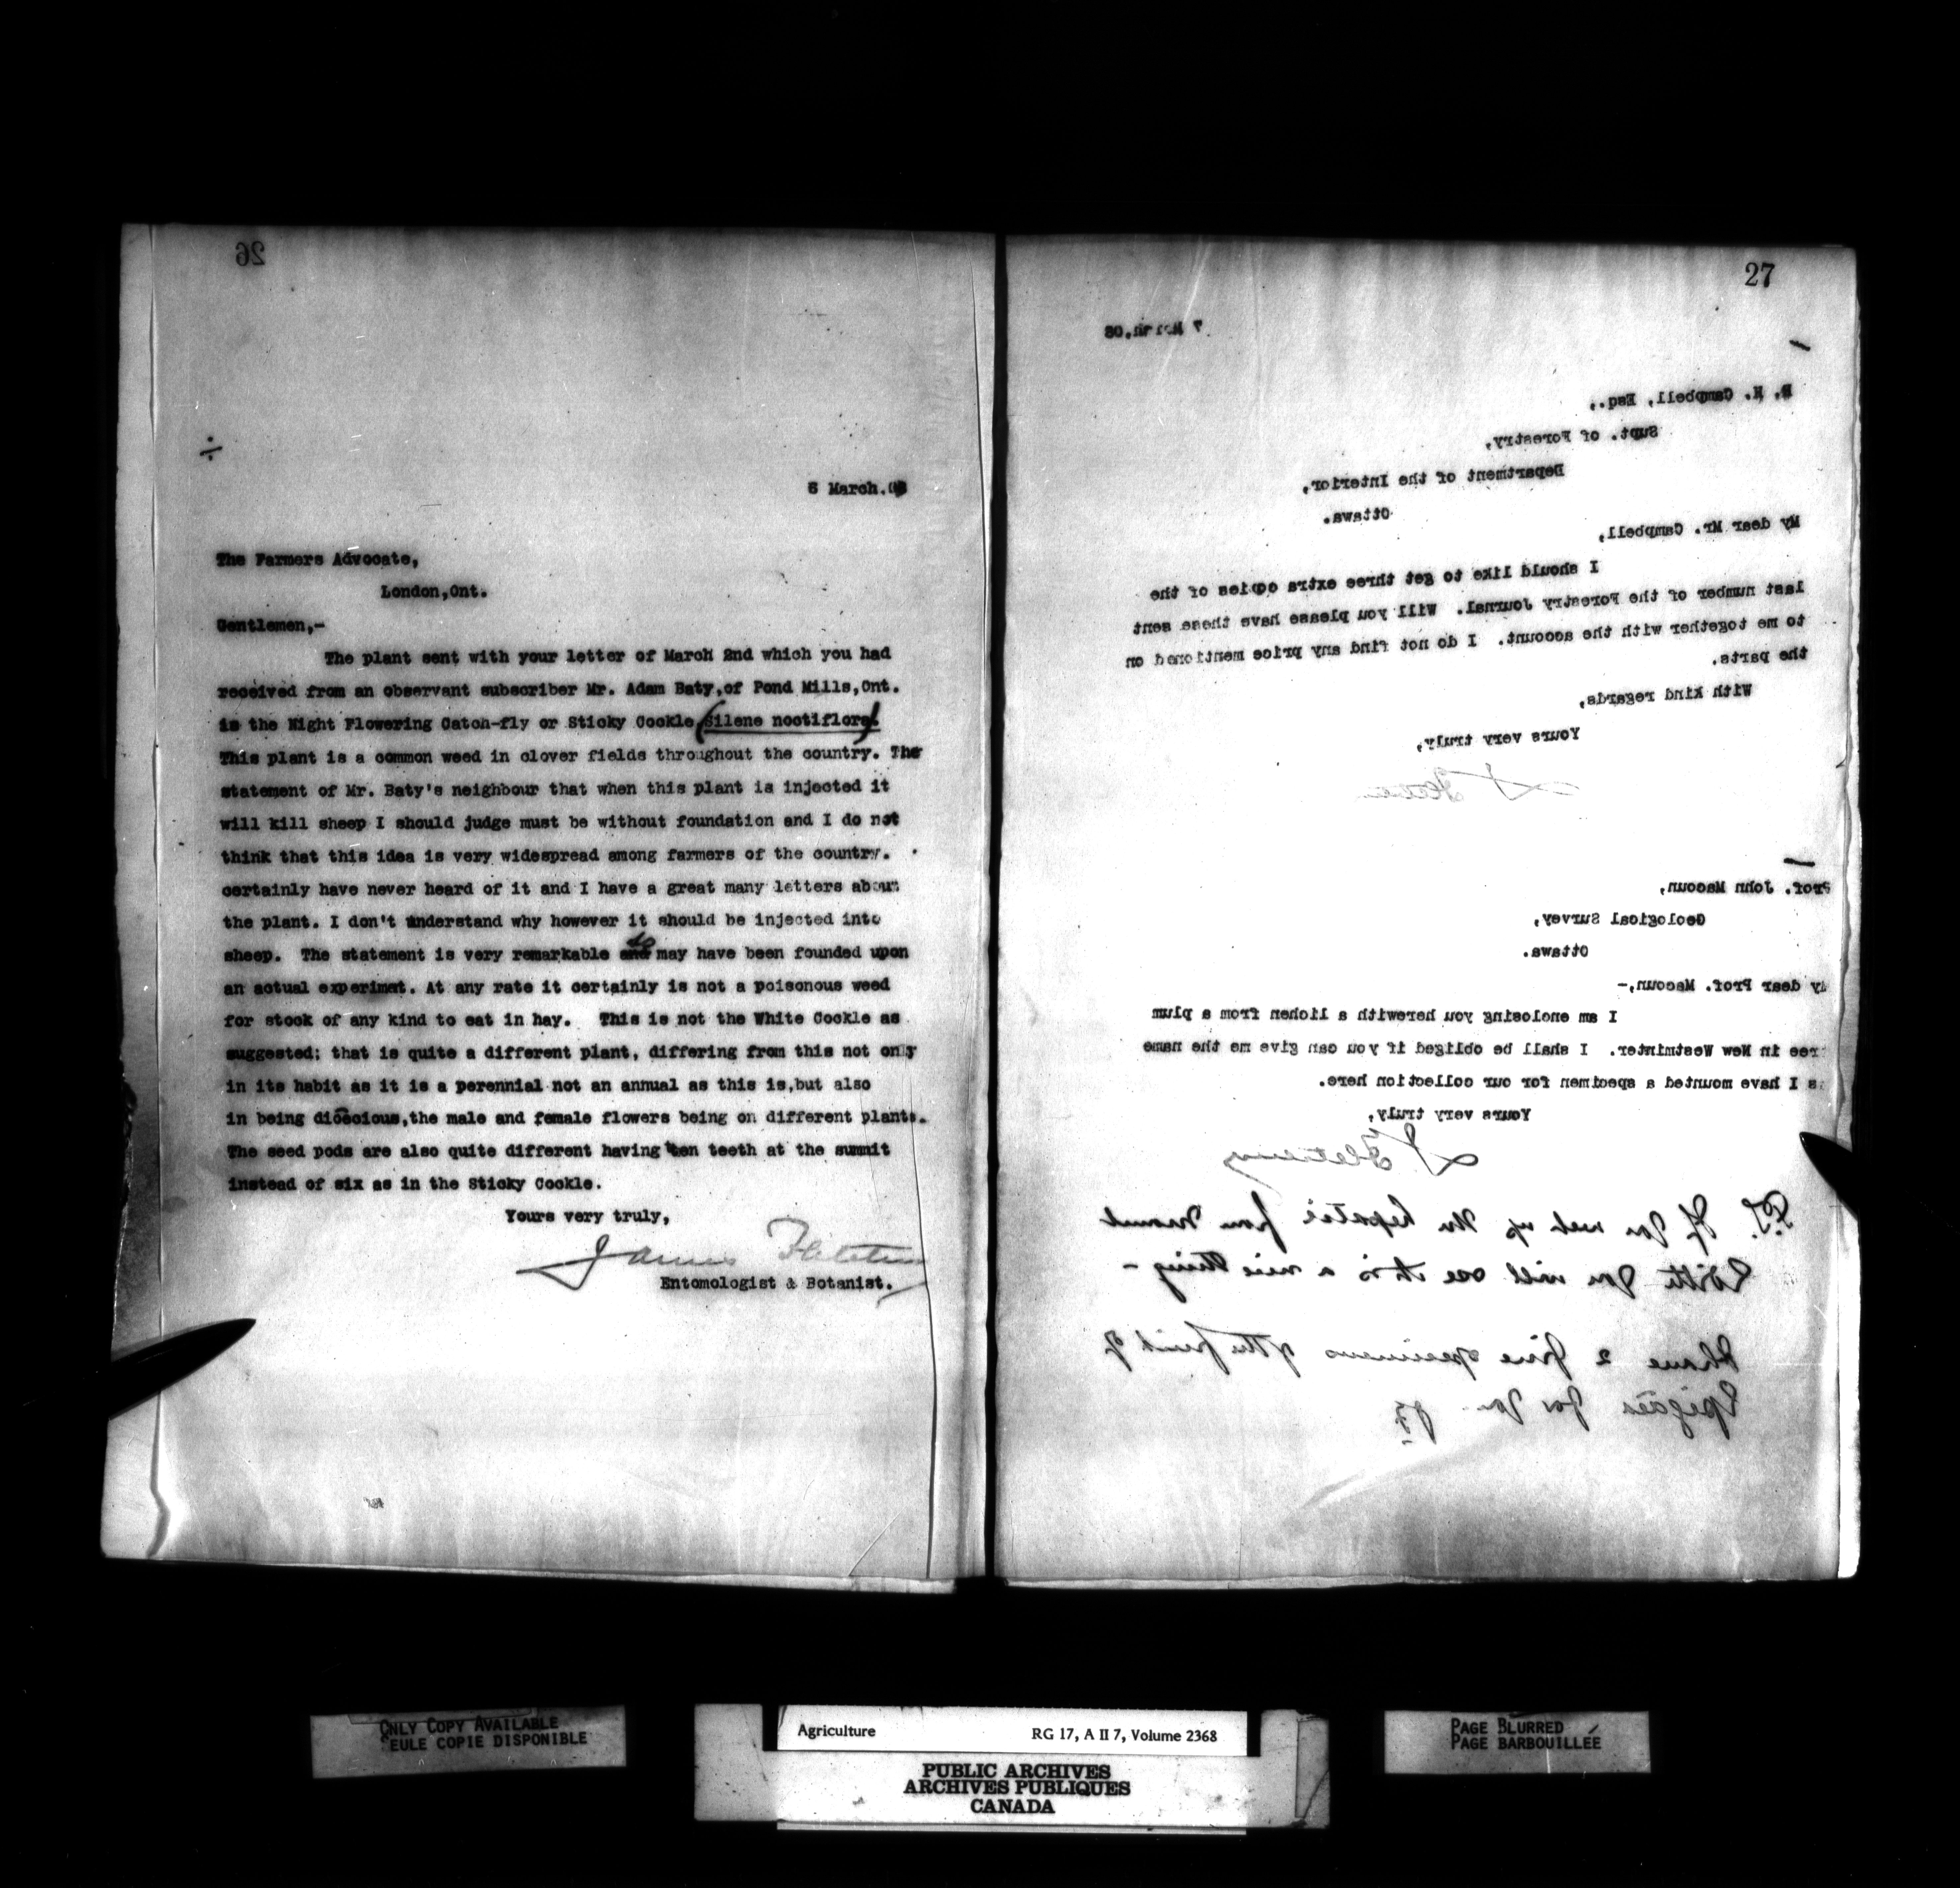 26
6 March.08
The Farmers Advocate,
London,Ont.
Gentlemen,-
The plant sent with your letter of March 2nd which you had
received from an observant subscriber Mr. Adam Baty,of Pond Mills,Ont.
is the Night Flowering Catch-fly or Sticky Cockle (Silene noctiflora).
This plant is a common weed in clover fields throughout the country. The
statement of Mr. Baty's neighbour that when this plant is injected it
will kill sheep I should judge must be without foundation and I do not
think that this idea is very widespread among farmers of the country.
certainly have never heard of it and I have a great many letters about
the plant. I don't understand why however it should be injected into
sheep. The statement is very remarkable so may have been founded upon
an actual experimet. At any rate it certainly is not a poisonous weed
for stock of any kind to eat in hay. This is not the White Cockle as
suggested; that is quite a different plant, differing from this not only
in its habit as it is a perennial not an annual as this is,but also
in being dioecious,the male and female flowers being on different plants.
The seed pods are also quite different having ten teeth at the summit
instead of six as in the Sticky Cockle.
Yours very truly,
James Fletcher
Entomologist & Botanist.
27
7 March.08
R. H. Campbell, Esq.,
Supt. of Forestry,
Department of the Interior,
Ottawa.
My dear Mr. Campbell,
I should like to get three extra copies of the
last number of the Forestry Journal. Will you please have these sent
to me together with the account. I do not find any price mentioned on
the parts.
With kind regards,
Yours very truly,
Prof. John Macoun,
Geological Survey,
Ottawa.
My dear Prof. Macoun,-
I am enclosing you herewith a lichen from a plum
tree in New Westminter. I shall be obliged if you can give me the name
as I have mounted a specimen for our collection here.
Yours very truly,
J Fletcher
If you the hepatic from
you will see it is a nice thing -
I have 2 fine specimens of the fruit of
Epigaea for you JF
ONLY COPY AVAILABLE
SEULE COPIE DISPONIBLE
Agriculture RG 17, A II 7, Volume 2368
PUBLIC ARCHIVES
ARCHIVES PUBLIQUES
CANADA
PAGE BLURRED
PAGE BARBOUILLÉE